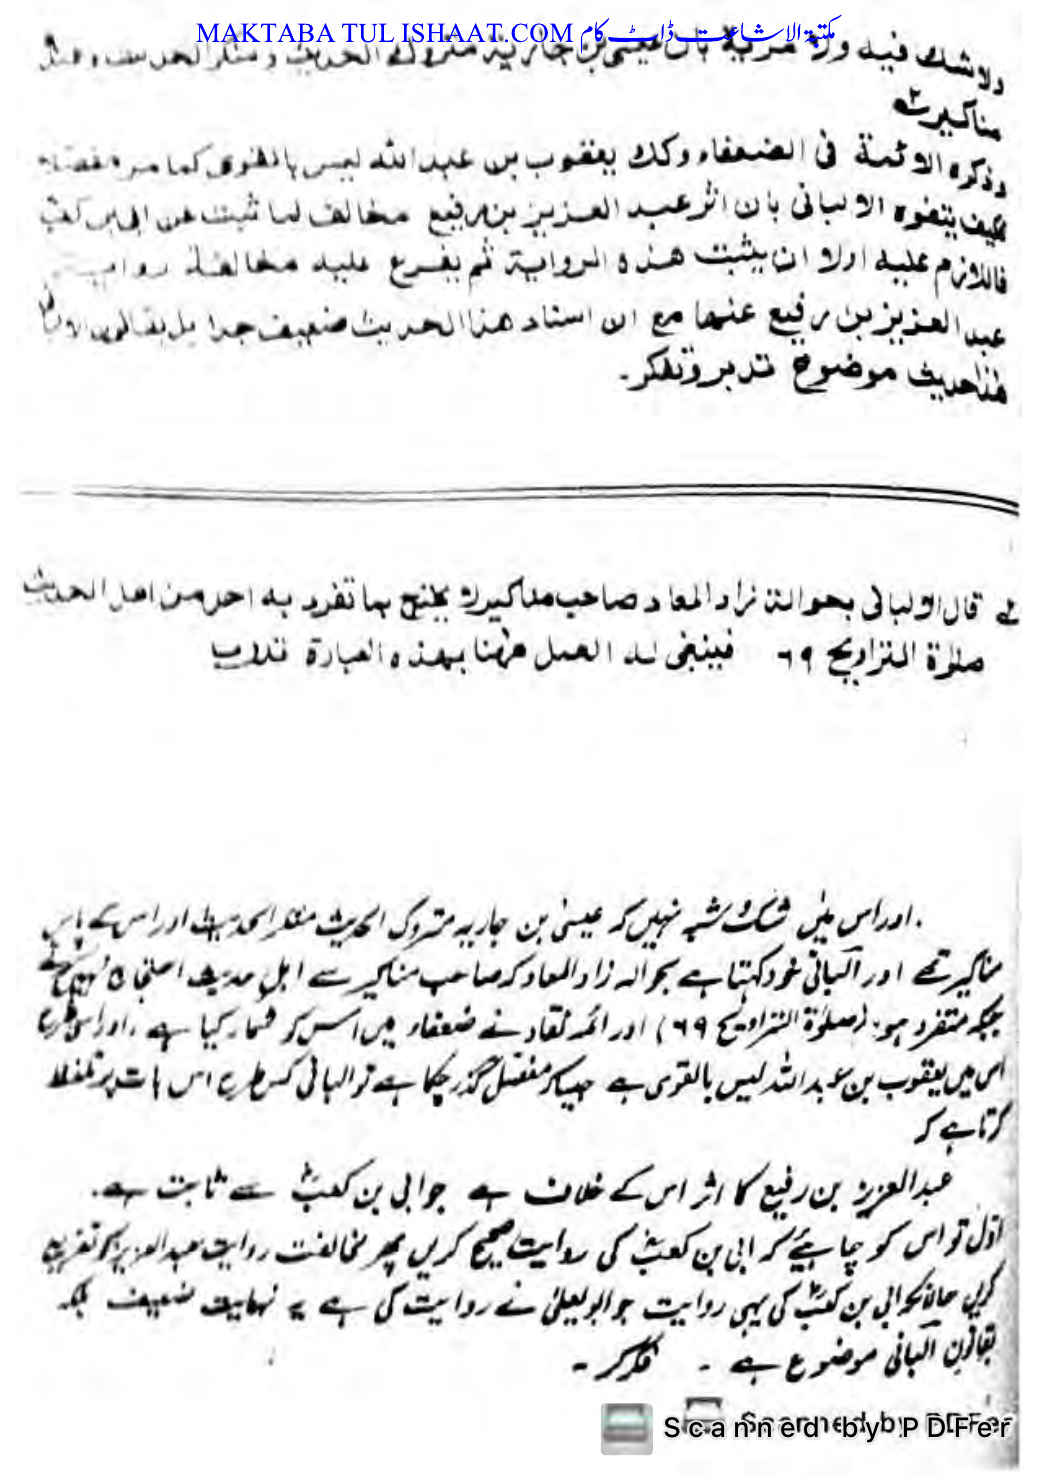 MAKTABA TUL ISHAAT.COM مکتبۃ الاشاعت ڈاٹ کام
ولا شك فيه ولا مرية بان عيسى بن جارية متروك الحديث و منكر الحديث وعنده
مناكير
وذكره الائمة فى الضعفاء وكك يعقوب بن عبد الله ليس بالقوى كما مر مفصلا
فكيف يتفوه الالبانى بان اثر عبد العزيز بن رفيع مخالف لما ثبت عن ابى بن كعب
فاللازم عليه اولا ان يثبت هذه الرواية ثم يفرع عليه مخالفة رواية
عبد العزيز بن رفيع عنها مع ان اسناد هذا الحديث ضعيف جدا بل بقانون الالبانى
هذا حديث موضوع تدبر وتفكر۔
قال الالبانى بحوالة زاد المعاد صاحب مناكير لا يحتج بما تفرد به احد من اهل الحديث
صلوٰة التراويح ٦٩ فينبغى له العمل ههنا بهذه العبارة
۔ اور اس میں شک و شبہ نہیں کہ عیسیٰ بن جاریہ متروک الحدیث منکر الحدیث اور اس کے پاس
مناکیر تھے اور البانی خود کہتا ہے بحوالہ زاد المعاد کہ صاحب مناکیر سے اہل حدیث احتجاج نہیں کرتے
جبکہ متفرد ہو۔ (صلوٰۃ التراویح ۶۹) اور ائمہ نقاد نے ضعفاء میں اس کو شمار کیا ہے ۔ اور اسی طرح
اس میں یعقوب بن عبد اللہ لیس بالقوی ہے جیسا کہ مفصل گذر چکا ہے تو البانی کس طرح اس بات پر تلفظ
کرتا ہے کہ
عبد العزیز بن رفیع کا اثر اس کے خلاف ہے جو ابی بن کعبؓ سے ثابت ہے۔
اول تو اس کو چاہیئے کہ ابی بن کعبؓ کی روایت صحیح کریں پھر مخالفت روایت عبد العزیز کو تفریع
کرلی حالانکہ ابی بن کعبؓ کی یہی روایت جو ابو یعلیٰ نے روایت کی ہے یہ نہایت ضعیف بلکہ
بقانون البانی موضوع ہے ۔ فکر کر ۔
Scanned by PDFer